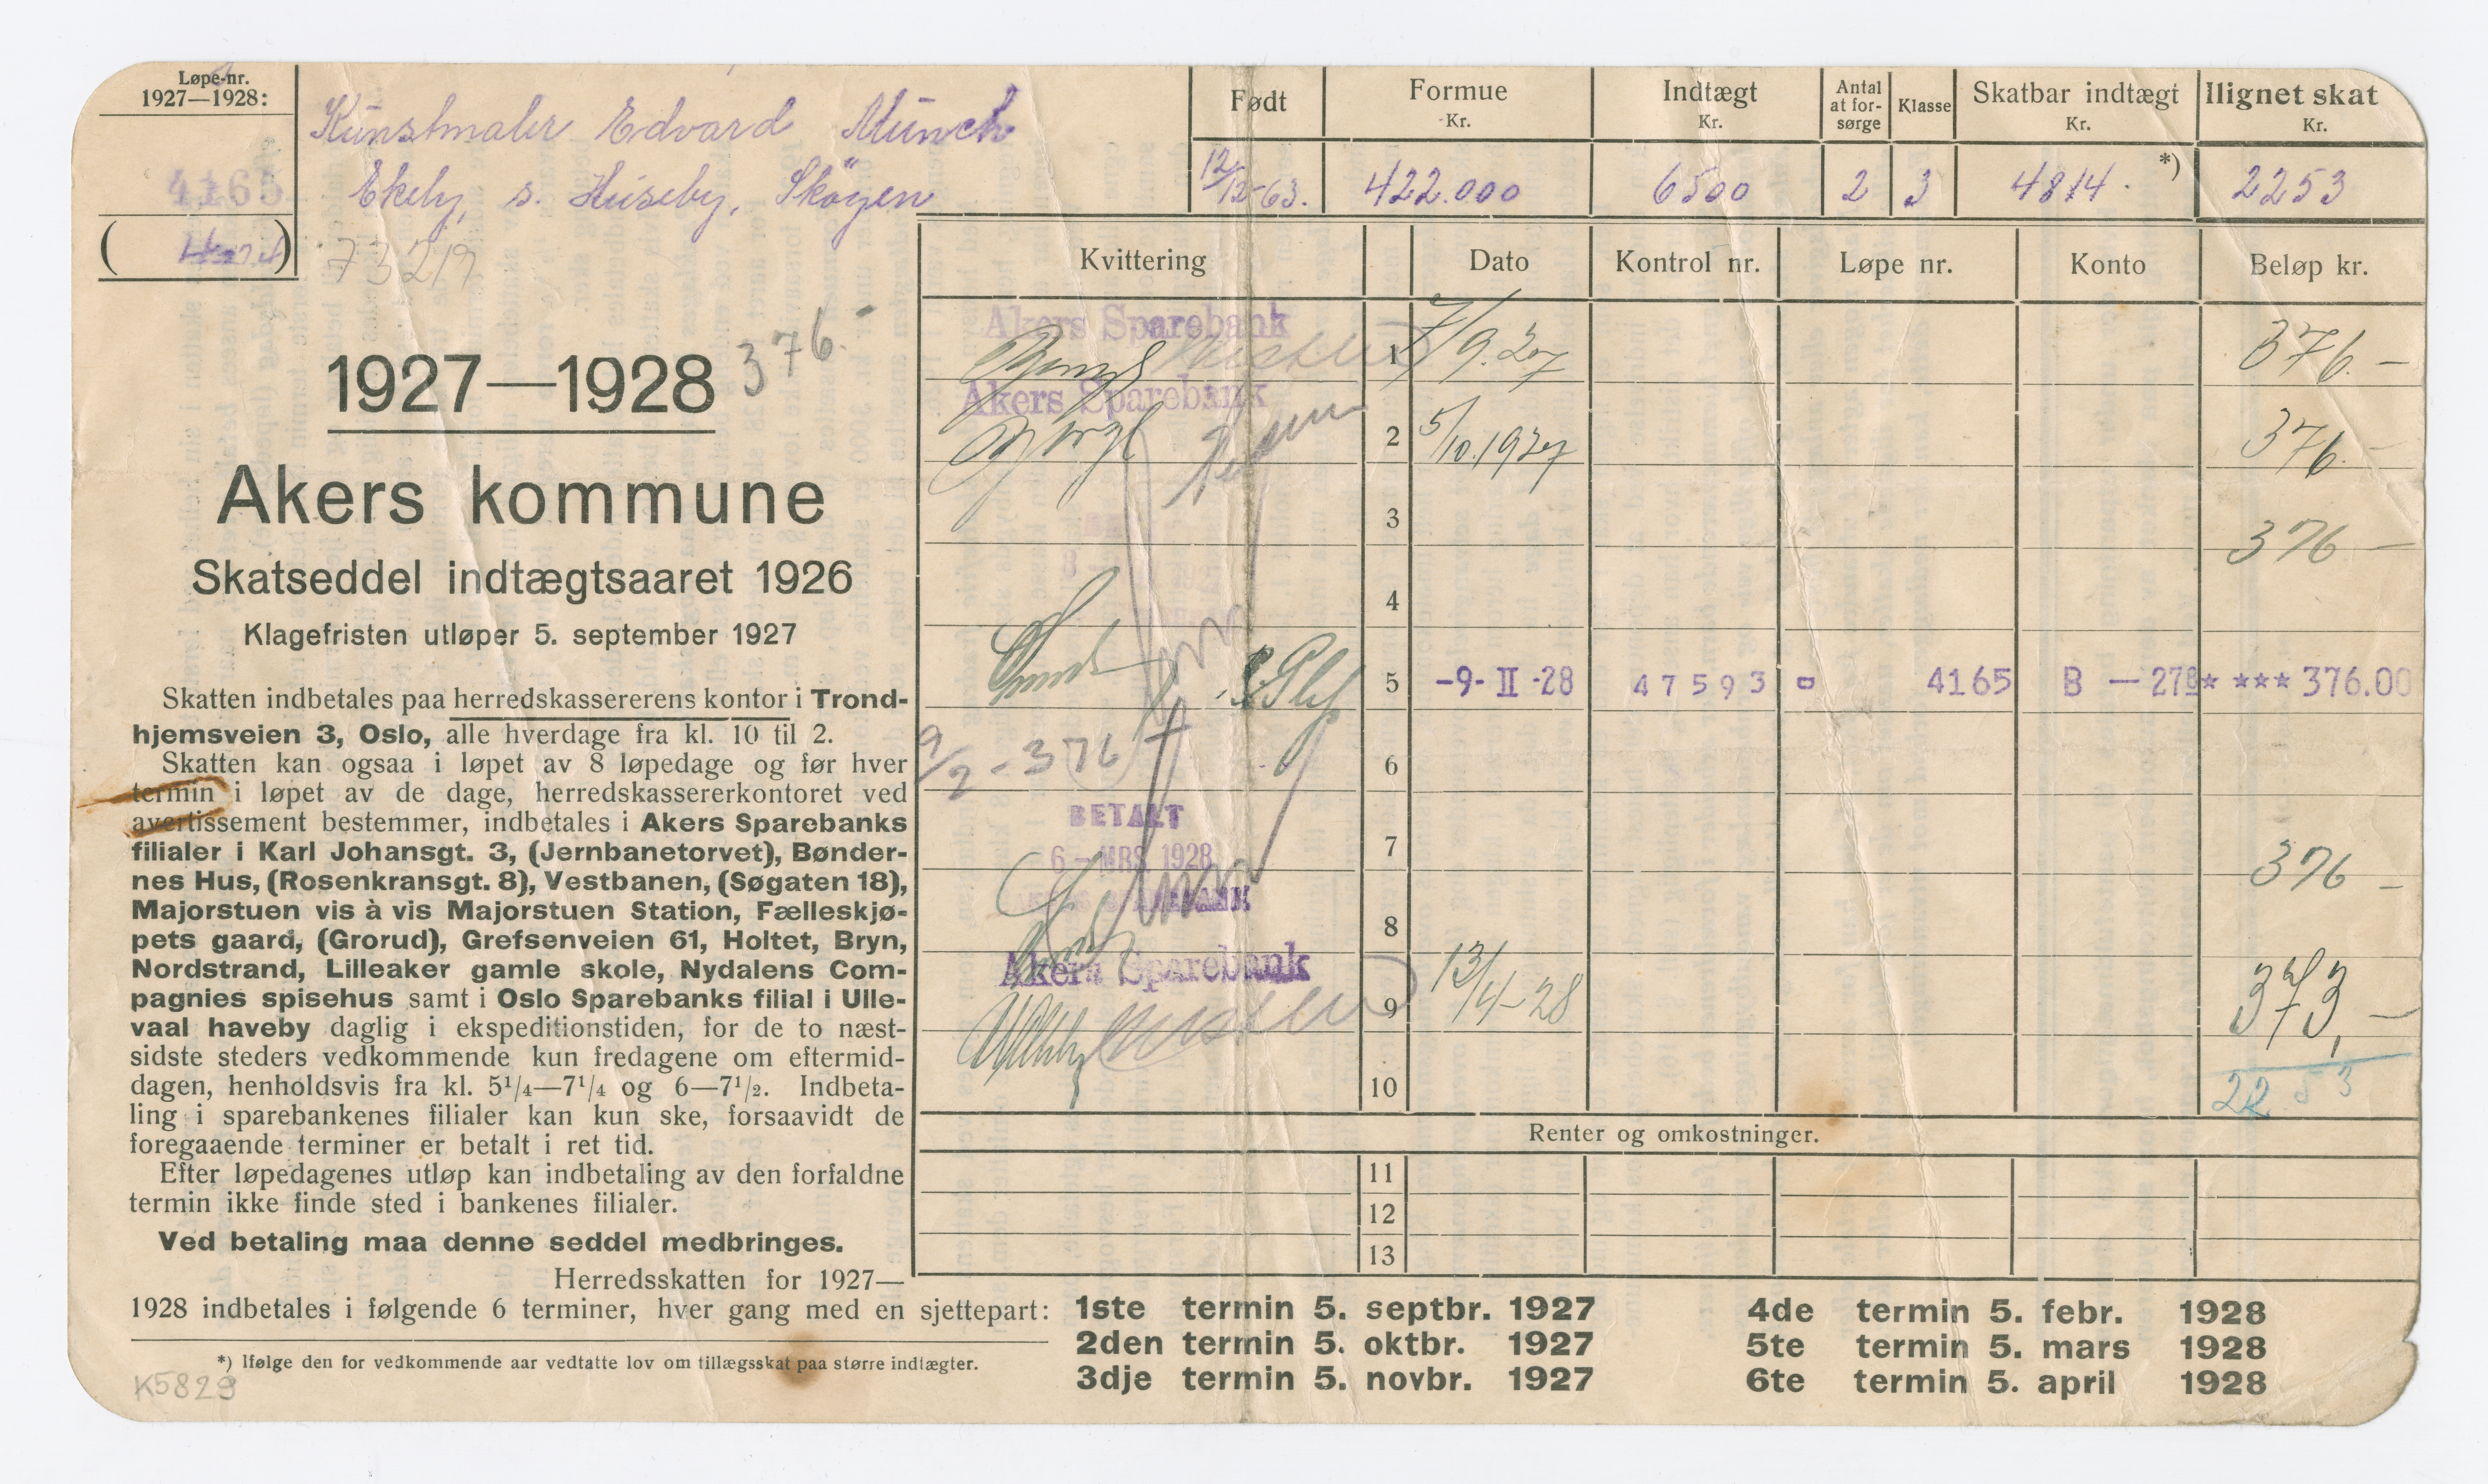 Løpe-nr.
1927—1928:
4165
Kunstmaler Edvard Munch
Ekely, s. Huseby, Skøyen
73219
Født
12/12-63.
Formue
Kr.
422.000
Indtægt
Kr.
6500
Antal
at for-
sørge
2
Klasse
3
Skatbar indtægt
Kr.
4814. *)
Ilignet skat
Kr.
2253
376.-
1927—1928
Akers kommune
Skatseddel indtægtsaaret 1926
Klagefristen utløper 5. september 1927
Skatten indbetales paa herredskassererens kontor i Trond-
hjemsveien 3, Oslo, alle hverdage fra kl. 10 til 2.
Skatten kan ogsaa i løpet av 8 løpedage og før hver
termin i løpet av de dage, herredskassererkontoret ved
avertissement bestemmer, indbetales i Akers Sparebanks
filialer i Karl Johansgt. 3, (Jernbanetorvet), Bønder-
nes Hus, (Rosenkransgt. 8), Vestbanen, (Søgaten 18),
Majorstuen vis à vis Majorstuen Station, Fælleskjø-
pets gaard, (Grorud), Grefsenveien 61, Holtet, Bryn,
Nordstrand, Lilleaker gamle skole, Nydalens Com-
pagnies spisehus samt i Oslo Sparebanks filial i Ulle-
vaal haveby daglig i ekspeditionstiden, for de to næst-
sidste steders vedkommende kun fredagene om eftermid-
dagen, henholdsvis fra kl. 5¹/₄—7¹/₄ og 6—7¹/₂. Indbeta-
ling i sparebankenes filialer kan kun ske, forsaavidt de
foregaaende terminer er betalt i ret tid.
Efter løpedagenes utløp kan indbetaling av den forfaldne
termin ikke finde sted i bankenes filialer.
Ved betaling maa denne seddel medbringes.
Herredsskatten for 1927—
1928 indbetales i følgende 6 terminer, hver gang med en sjettepart:
*) Ifølge den for vedkommende aar vedtatte lov om tillægsskat paa større indtægter.
K5829
Kvittering Dato Kontrol nr. Løpe nr. Konto Beløp kr.
Akers Sparebank
1 7/9.27 376.-
Akers Sparebank
2 5/10.1927 376.-
3 376 -
4
5 -9-II-28 47593 4165 B — 278 * *** 376.00
9/2 - 376
6
BETALT
7 376 -
6 - MRS 1928
8
Akers Sparebank
9 13/4-28 373,-
10 2253
Renter og omkostninger.
11
12
13
1ste termin 5. septbr. 1927
2den termin 5. oktbr. 1927
3dje termin 5. novbr. 1927
4de termin 5. febr. 1928
5te termin 5. mars 1928
6te termin 5. april 1928